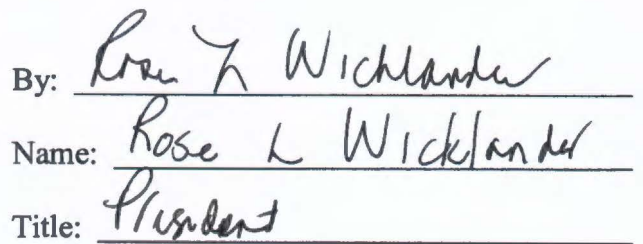 By: Rose L Wicklander
Name: Rose L Wicklander
Title: President